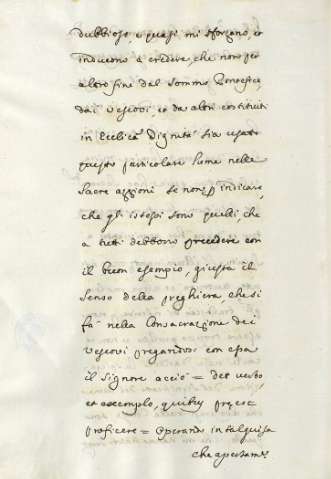 dubbioso e quasi mi sforzano, et
inducono a credere, che non per
altro fine dal Sommo Pontefice,
dai Vescovi, et da altri costituiti
in Eccl.ca Dignità sia usato
questo particolare lume nelle
Sacre azzioni se non p indicare,
che gli istessi sono quelli, che
a tutti debbono precedere con
il buon esempio, giusta il
senso della preghiera, che si
fà nella Consacrazione dei
Vescovi pregandosi con essa
il Signore acciò = det verbo
et exemplo, quibus præest
proficere = Operando in tal guisa
che apertam.te